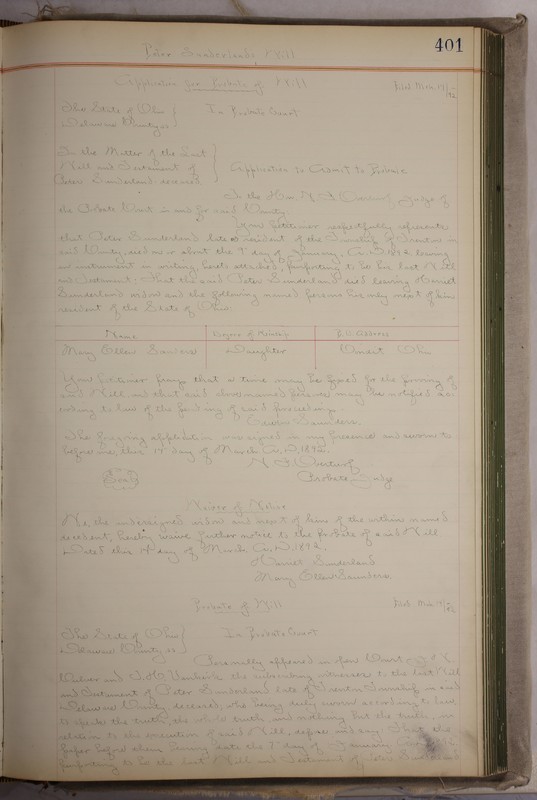 401
Peter Sunderland's Will
Application for Probate of Will
Filed Mch
The State of Ohio
Delaware County ss
In Probate Court
In the Matter of the Last
Will and Testament of
Peter Sunderland deceased
Application to Admit to Probate
To the Hon. Judge of
the Probate Court in and for said County
Your petitioner respectfully represents
that Peter Sunderland late a resident of the Township of Trenton in
said County, died on or about the 9" day of January, A.D. 1892 leaving
an instrument in writing, hereto attached, purporting to be his last Will
and Testament. That the said Peter Sunderland died leaving Harriet
Sunderland widow and the following named persons his only next of kin
resident of the State of Ohio:
Name
Degree of Kinship
P.O. Address
Mary Ellen
Daughter
Ohio
Your petitioner prays that a time may be fixed for the proving of
said Will and that said above named persons may be notified ac-
cording to law of the pendency of said proceeding.
Saunders.
The foregoing application was signed in my presence and sworn to
before me, this day of March A.D. 1892.
Probate Judge
Seal
Waiver of Notice
We, the undersigned widow and next of kin of the within named
decedent, hereby waive further notice to the probate of said Will
Dated this day of March A.D. 1892.
Harriet Sunderland
Mary Ellen Saunders
Probate of Will
Filed Mch
The State of Ohio
Delaware County ss
In Probate Court
Personally appeared in open Court
and the subscribing witnesses to the last Will
and Testament of Peter Sunderland late of Trenton Township in said
Delaware County, deceased, who being duly sworn according to law
to speak the truth, the whole truth and nothing but the truth, in
relation to the execution of said Will, depose and say: That the
paper before them bearing date the 7" day of January
purporting to be the last Will and Testament of Peter Sunderland